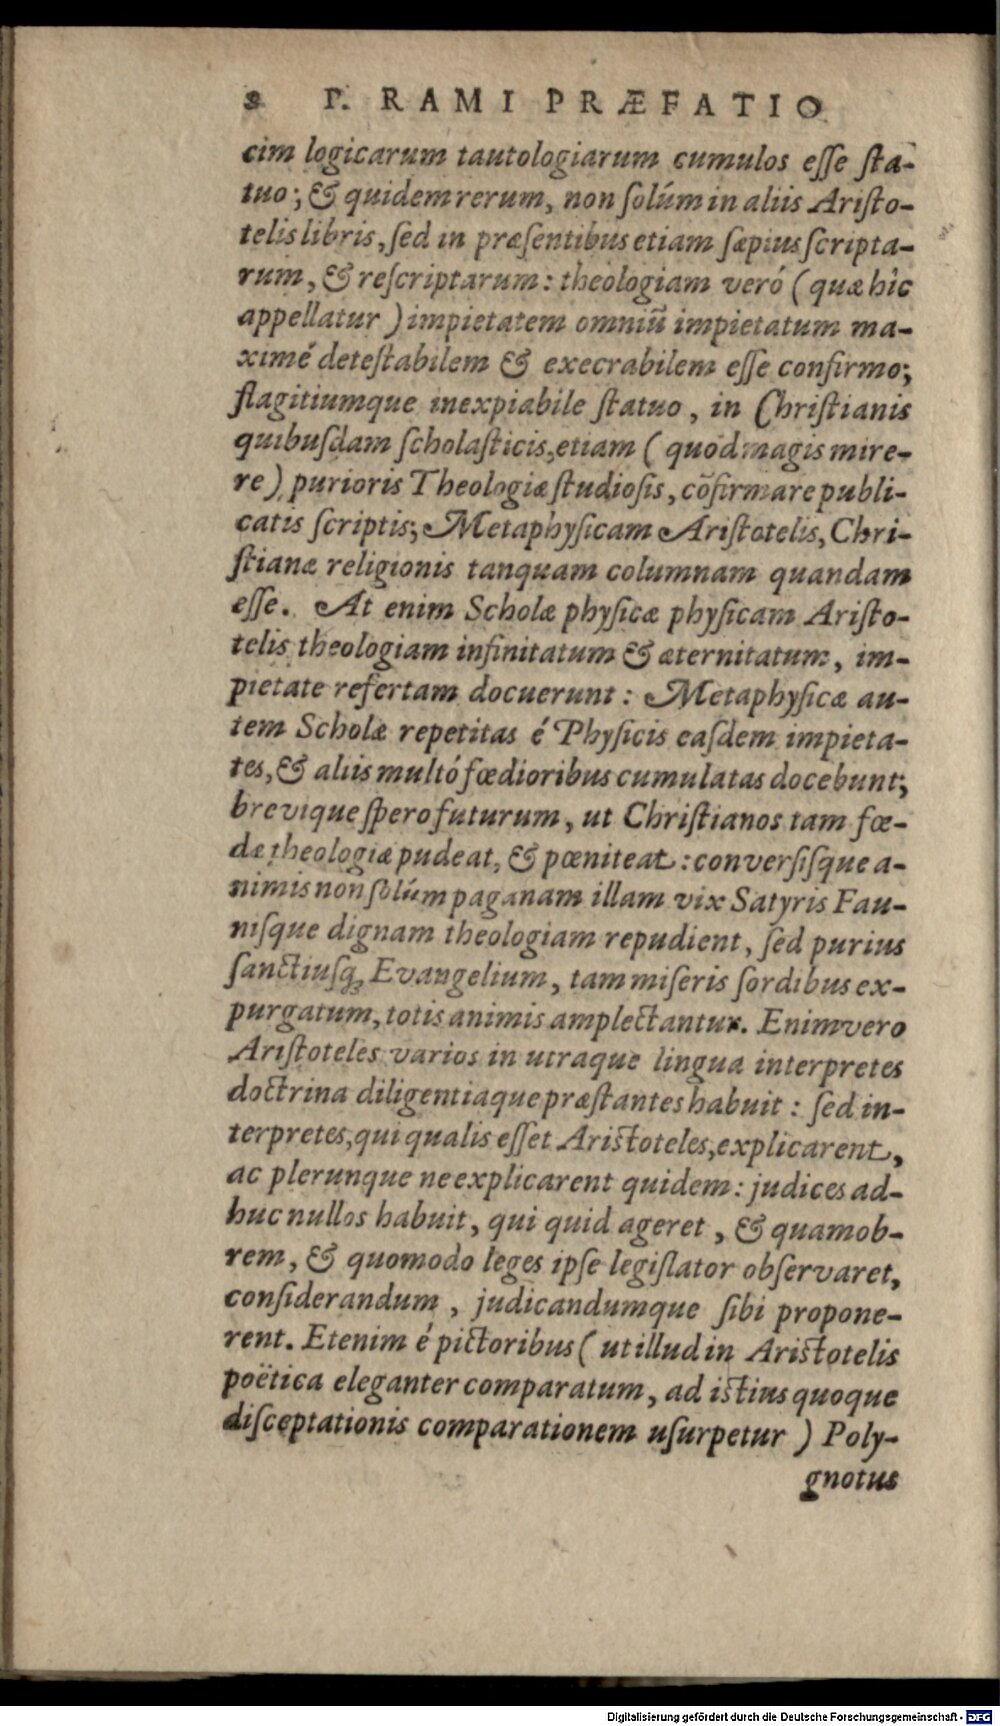 8 P. RAMI PRÆFATIO
cim logicarum tautologiarum cumulos eſſe ſta-
tuo; & quidem rerum, non ſolúm in aliis Ariſto-
telis libris, ſed in præſentibus etiam ſæpius ſcripta-
rum, & reſcriptarum: theologiam veró (quæ hîc
appellatur) impietatem omniũ impietatum ma-
ximé deteſtabilem & execrabilem eſſe confirmo;
flagitiumque inexpiabile ſtatuo, in Chriſtianis
quibuſdam ſcholaſticis, etiam (quòd magis mire-
re) purioris Theologiæ ſtudioſis, cõfirmare publi-
catis ſcriptis; Metaphyſicam Ariſtotelis, Chri-
ſtianæ religionis tanquam columnam quandam
eſſe. At enim Scholæ phyſicæ phyſicam Ariſto-
telis theologiam infinitatum & æternitatum, im-
pietate refertam docuerunt: Metaphyſicæ au-
tem Scholæ repetitas é Phyſicis eaſdem impieta-
tes, & aliis multó fœdioribus cumulatas docebunt;
brevique ſpero futurum, ut Chriſtianos tam fœ-
dæ theologiæ pudeat, & pœniteat: converſiſque a-
nimis non ſolúm paganam illam vix Satyris Fau-
niſque dignam theologiam repudient, ſed purius
ſanctiuſq; Evangelium, tam miſeris ſordibus ex-
purgatum, totis animis amplectantur. Enimvero
Ariſtoteles varios in utraque lingua interpretes
doctrina diligentiaque præſtantes habuit: ſed in-
terpretes, qui qualis eſſet Ariſtoteles, explicarent,
ac plerunque ne explicarent quidem: judices ad-
huc nullos habuit, qui quid ageret, & quamob-
rem, & quomodo leges ipſe legiſlator obſervaret,
conſiderandum, judicandumque ſibi propone-
rent. Etenim é pictoribus (ut illud in Ariſtotelis
poëtica eleganter comparatum, ad iſtius quoque
diſceptationis comparationem uſurpetur) Poly-
gnotus
Digitalisierung gefördert durch die Deutsche Forschungsgemeinschaft - DFG